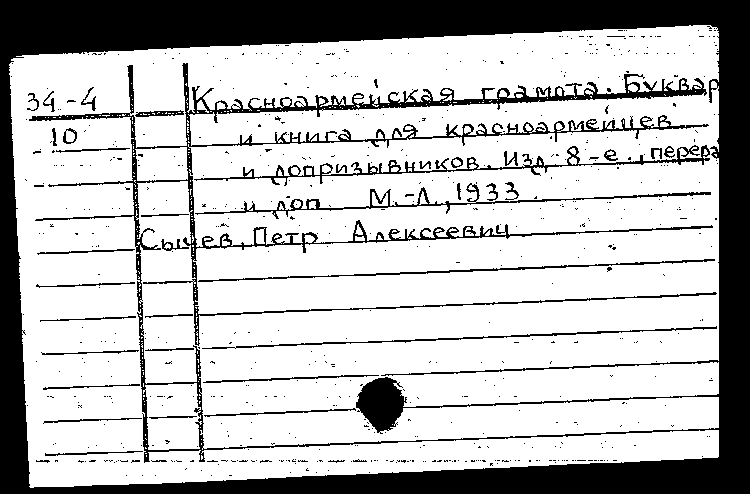 34-4 Красноармейская грамота. Буквар
10 и книга для красноармейцев
и допризывников. Изд 8-е., перера
и доп М.-Л., 1933.
Сычев, Петр Алексеевич